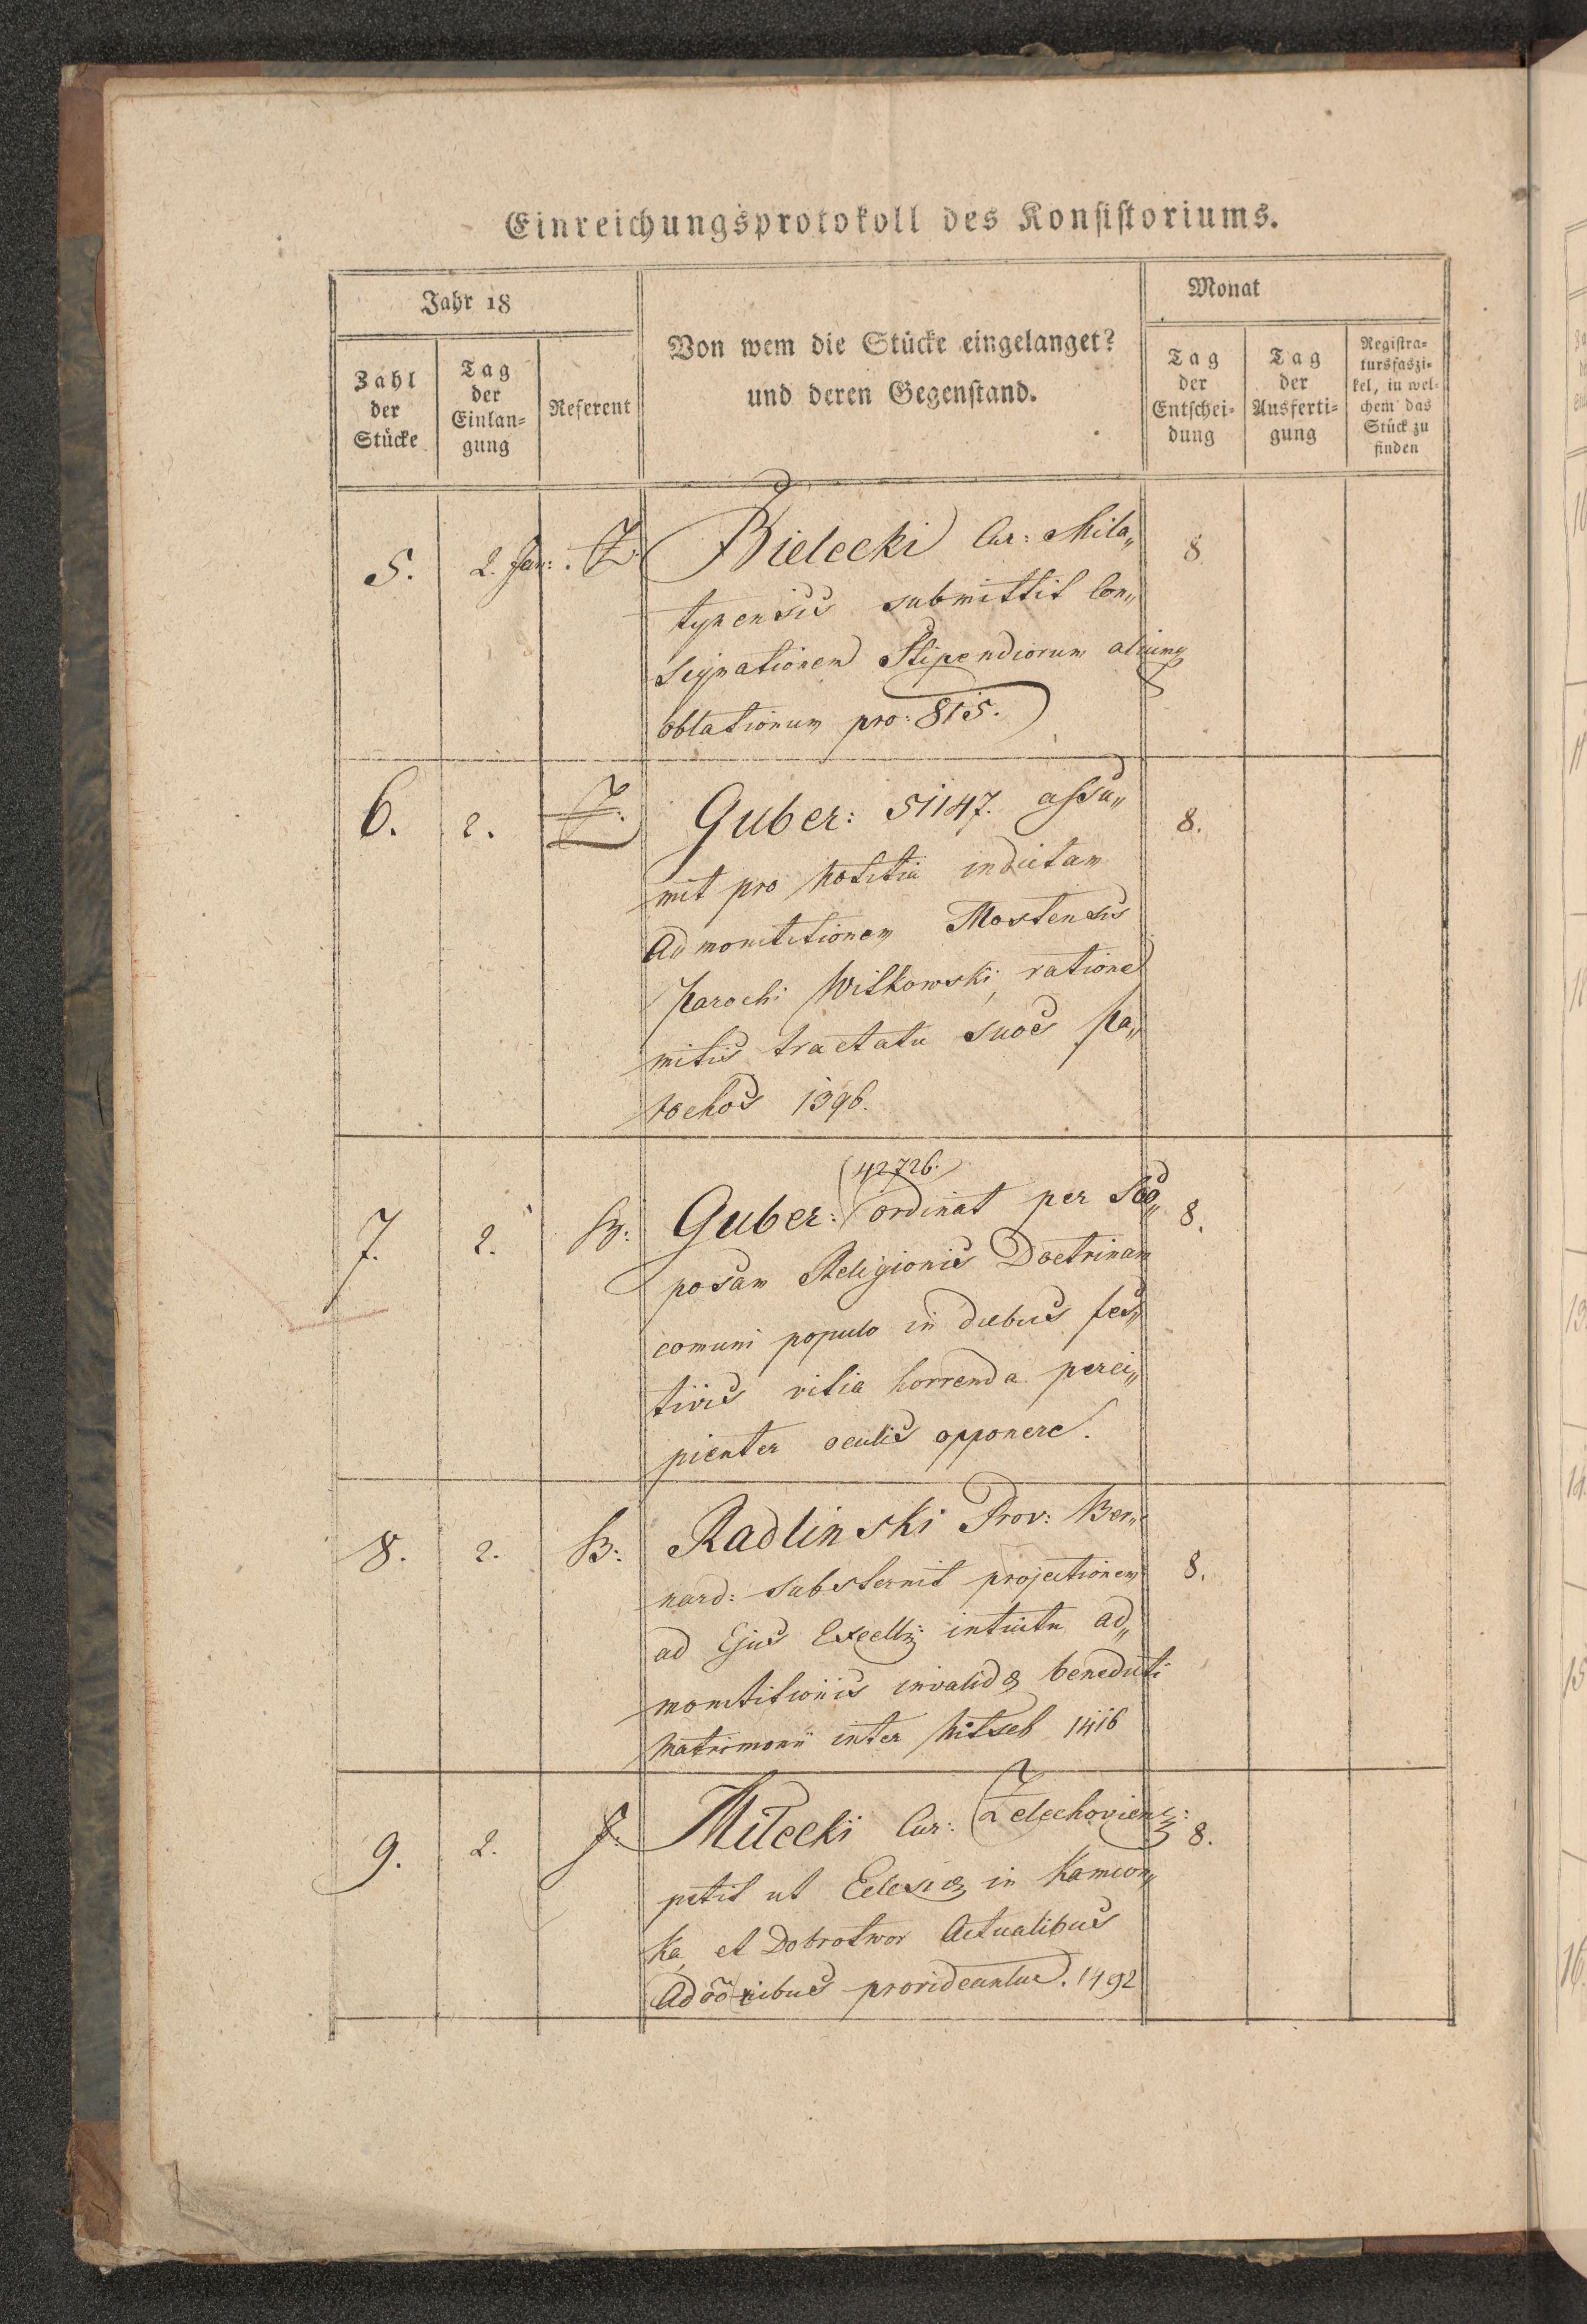 Einreichungsprotokoll des Konsistoriums.
Jahr 18
Monat
Zahl
der
Stücke
Tag
der
Einlan=
gung
Referent
Von wem die Stücke eingelanget?
und deren Gegenstand.
Tag
der
Entschei=
dung
Tag
der
Ausferti=
gung
Registra=
tursfaszi=
kel, in wel=
chem das
Stück zu
finden
5. 2. Jan: Z. Bielecki Cur: Mila„ 8
tynensis submittit Con„
signationem Stipendiorum
oblationum pro: 815.
6. 2. Z. Guber: 51147. assu„ 8.
mit pro notitia
admonititionem Mostensis
Parochi Witkowski, ratione
mitis tractatu suos Pa„
rochos 1396.
7. 2. B: Guber: (42726.) ordinat per 8.
posam Religionis Doctrinam
comuni populo in diebus fes„
tivis vitia horrenda perci„
pienter oculis opponere.
8. 2. B: Radlinski Prov: Ber„ 8.
nard: substernit projectionem
ad Ejus intuitu ad„
monititionis invalidæ benedicti
matrimonii inter 1416
9. 2. J: Milecki Cur: Żelechoviens: 8.
petit ut Eclesiæ in Kamion„
ka, et Dobrotwor Actualibus
provideantur. 1492